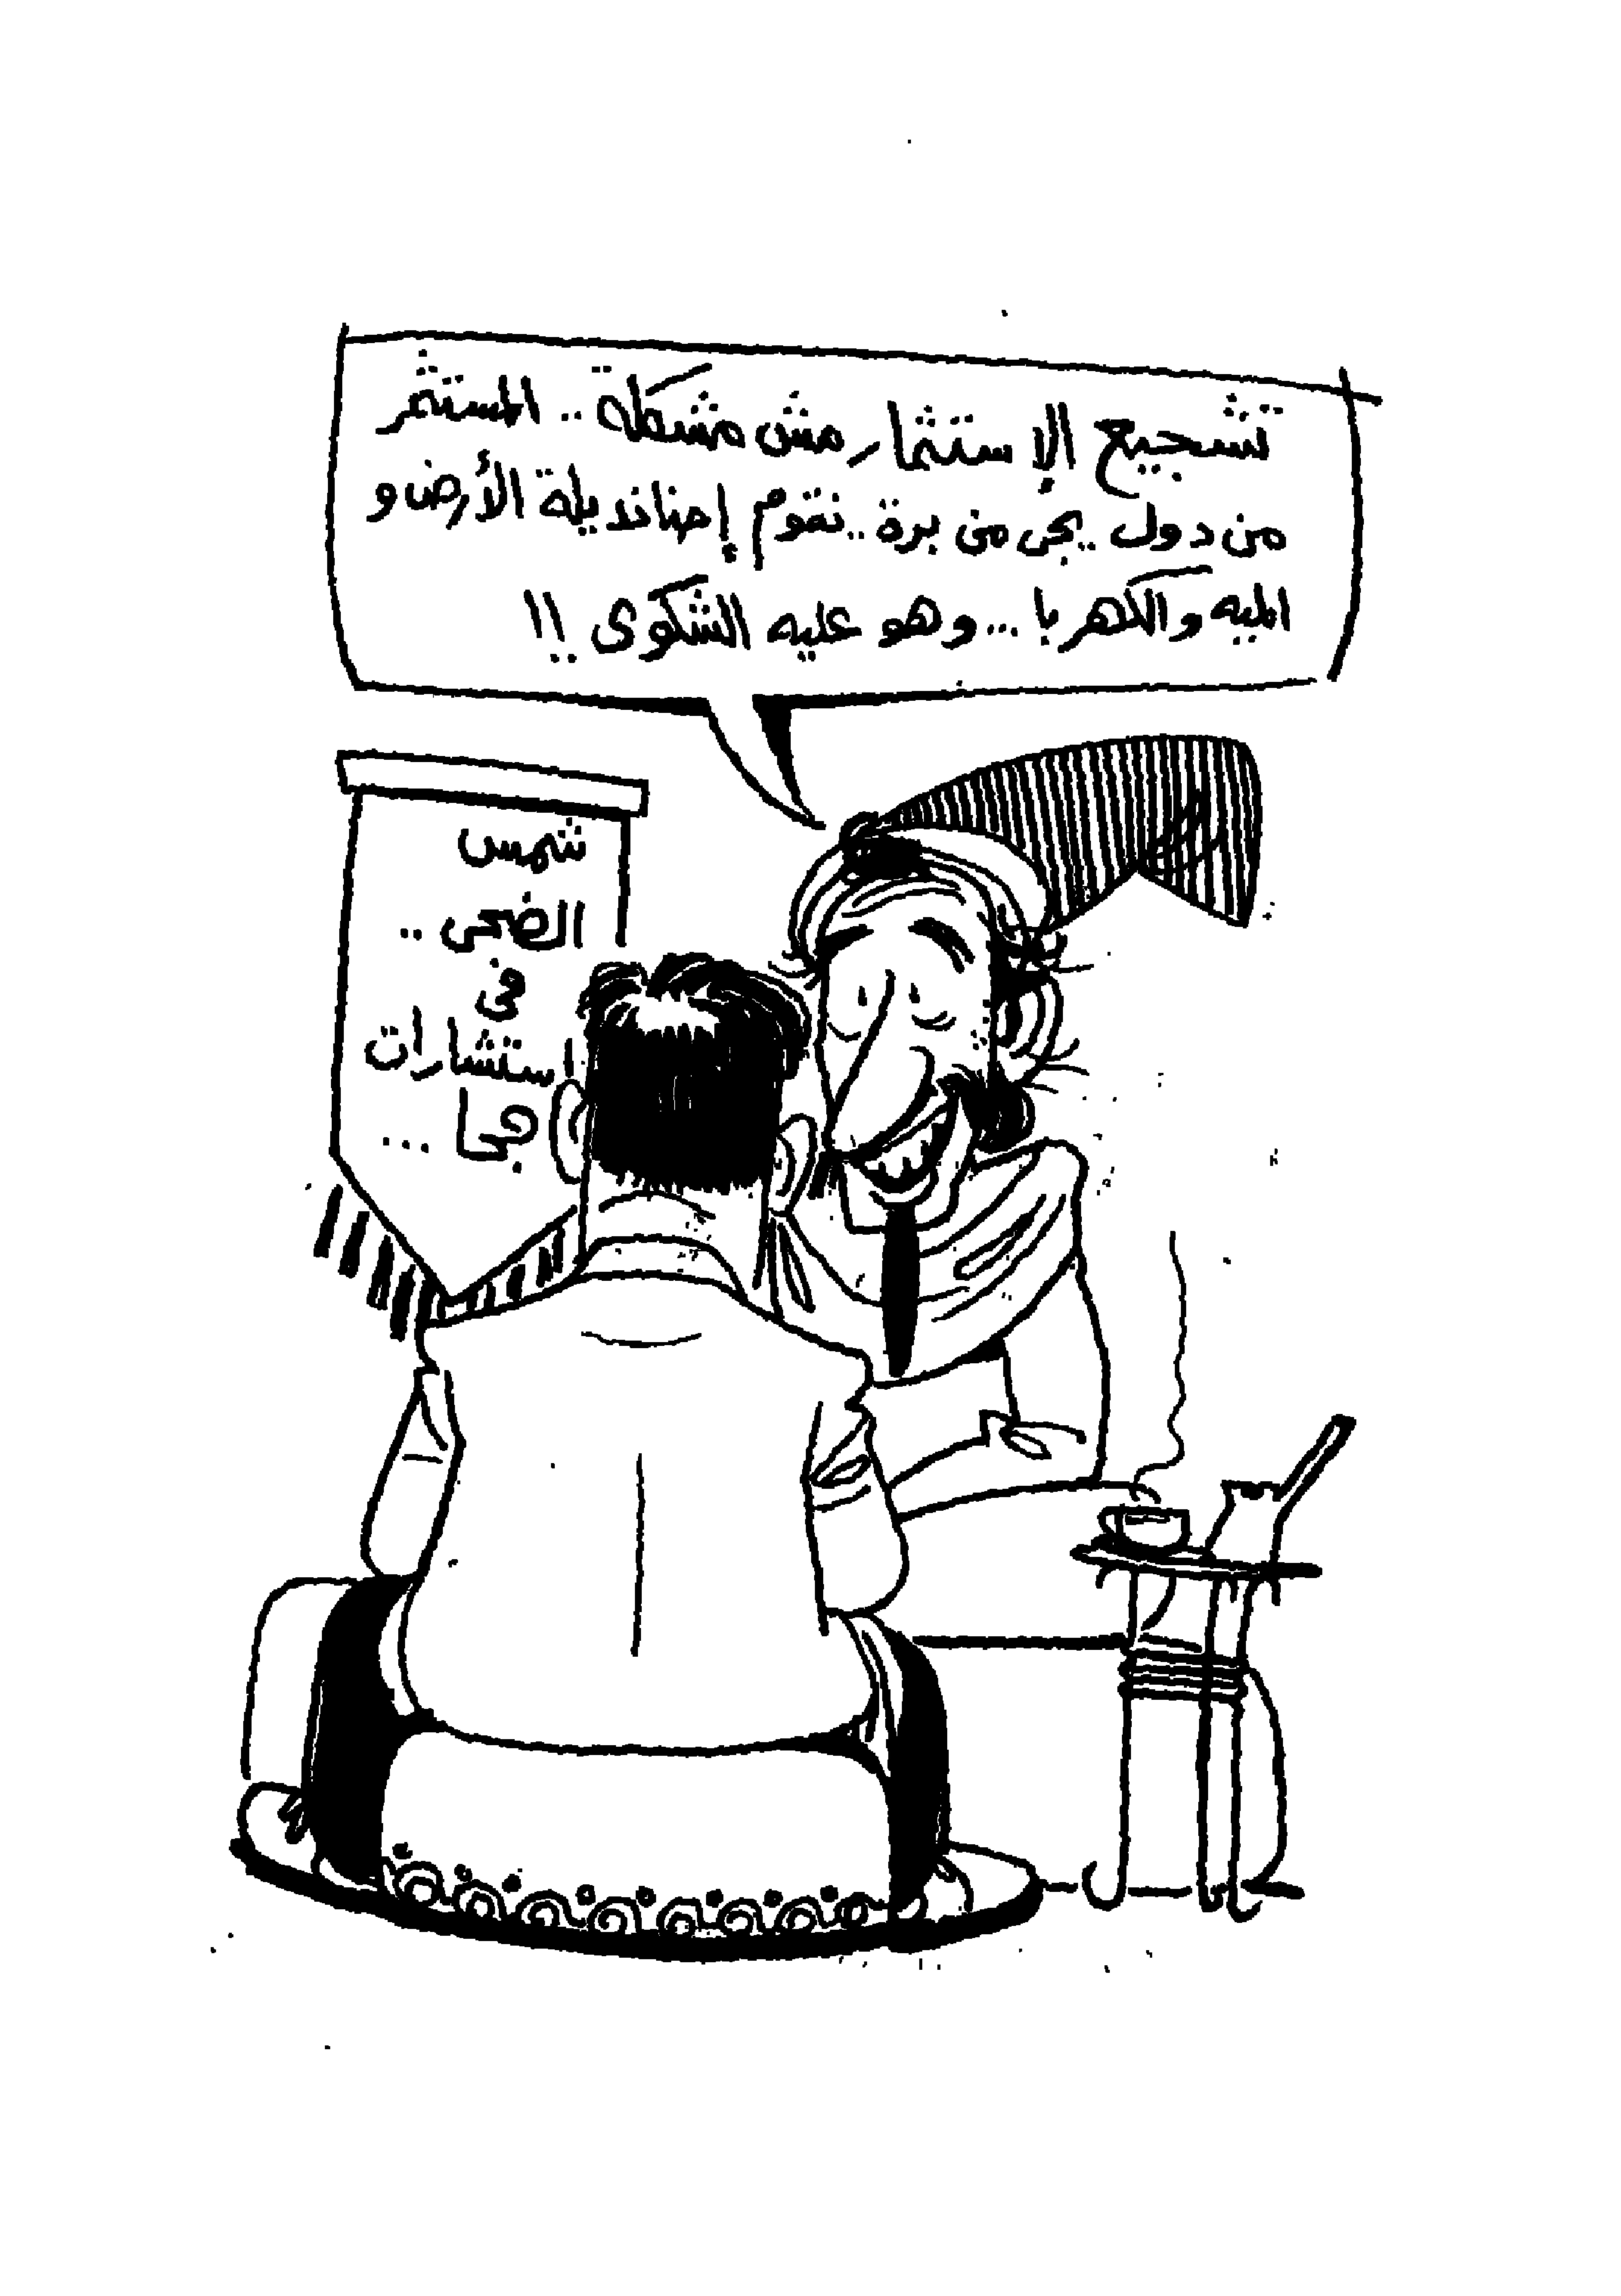 تشجيع الإستثمار مش مشكلة .. المستثمر
من دول .. يجى من برة .. نقوم إحنا نديله الأرض و
الميه والكهربا ... وهو عليه الشكوى !!
شمس
الضحى ..
فى
استشارات
جحا ...